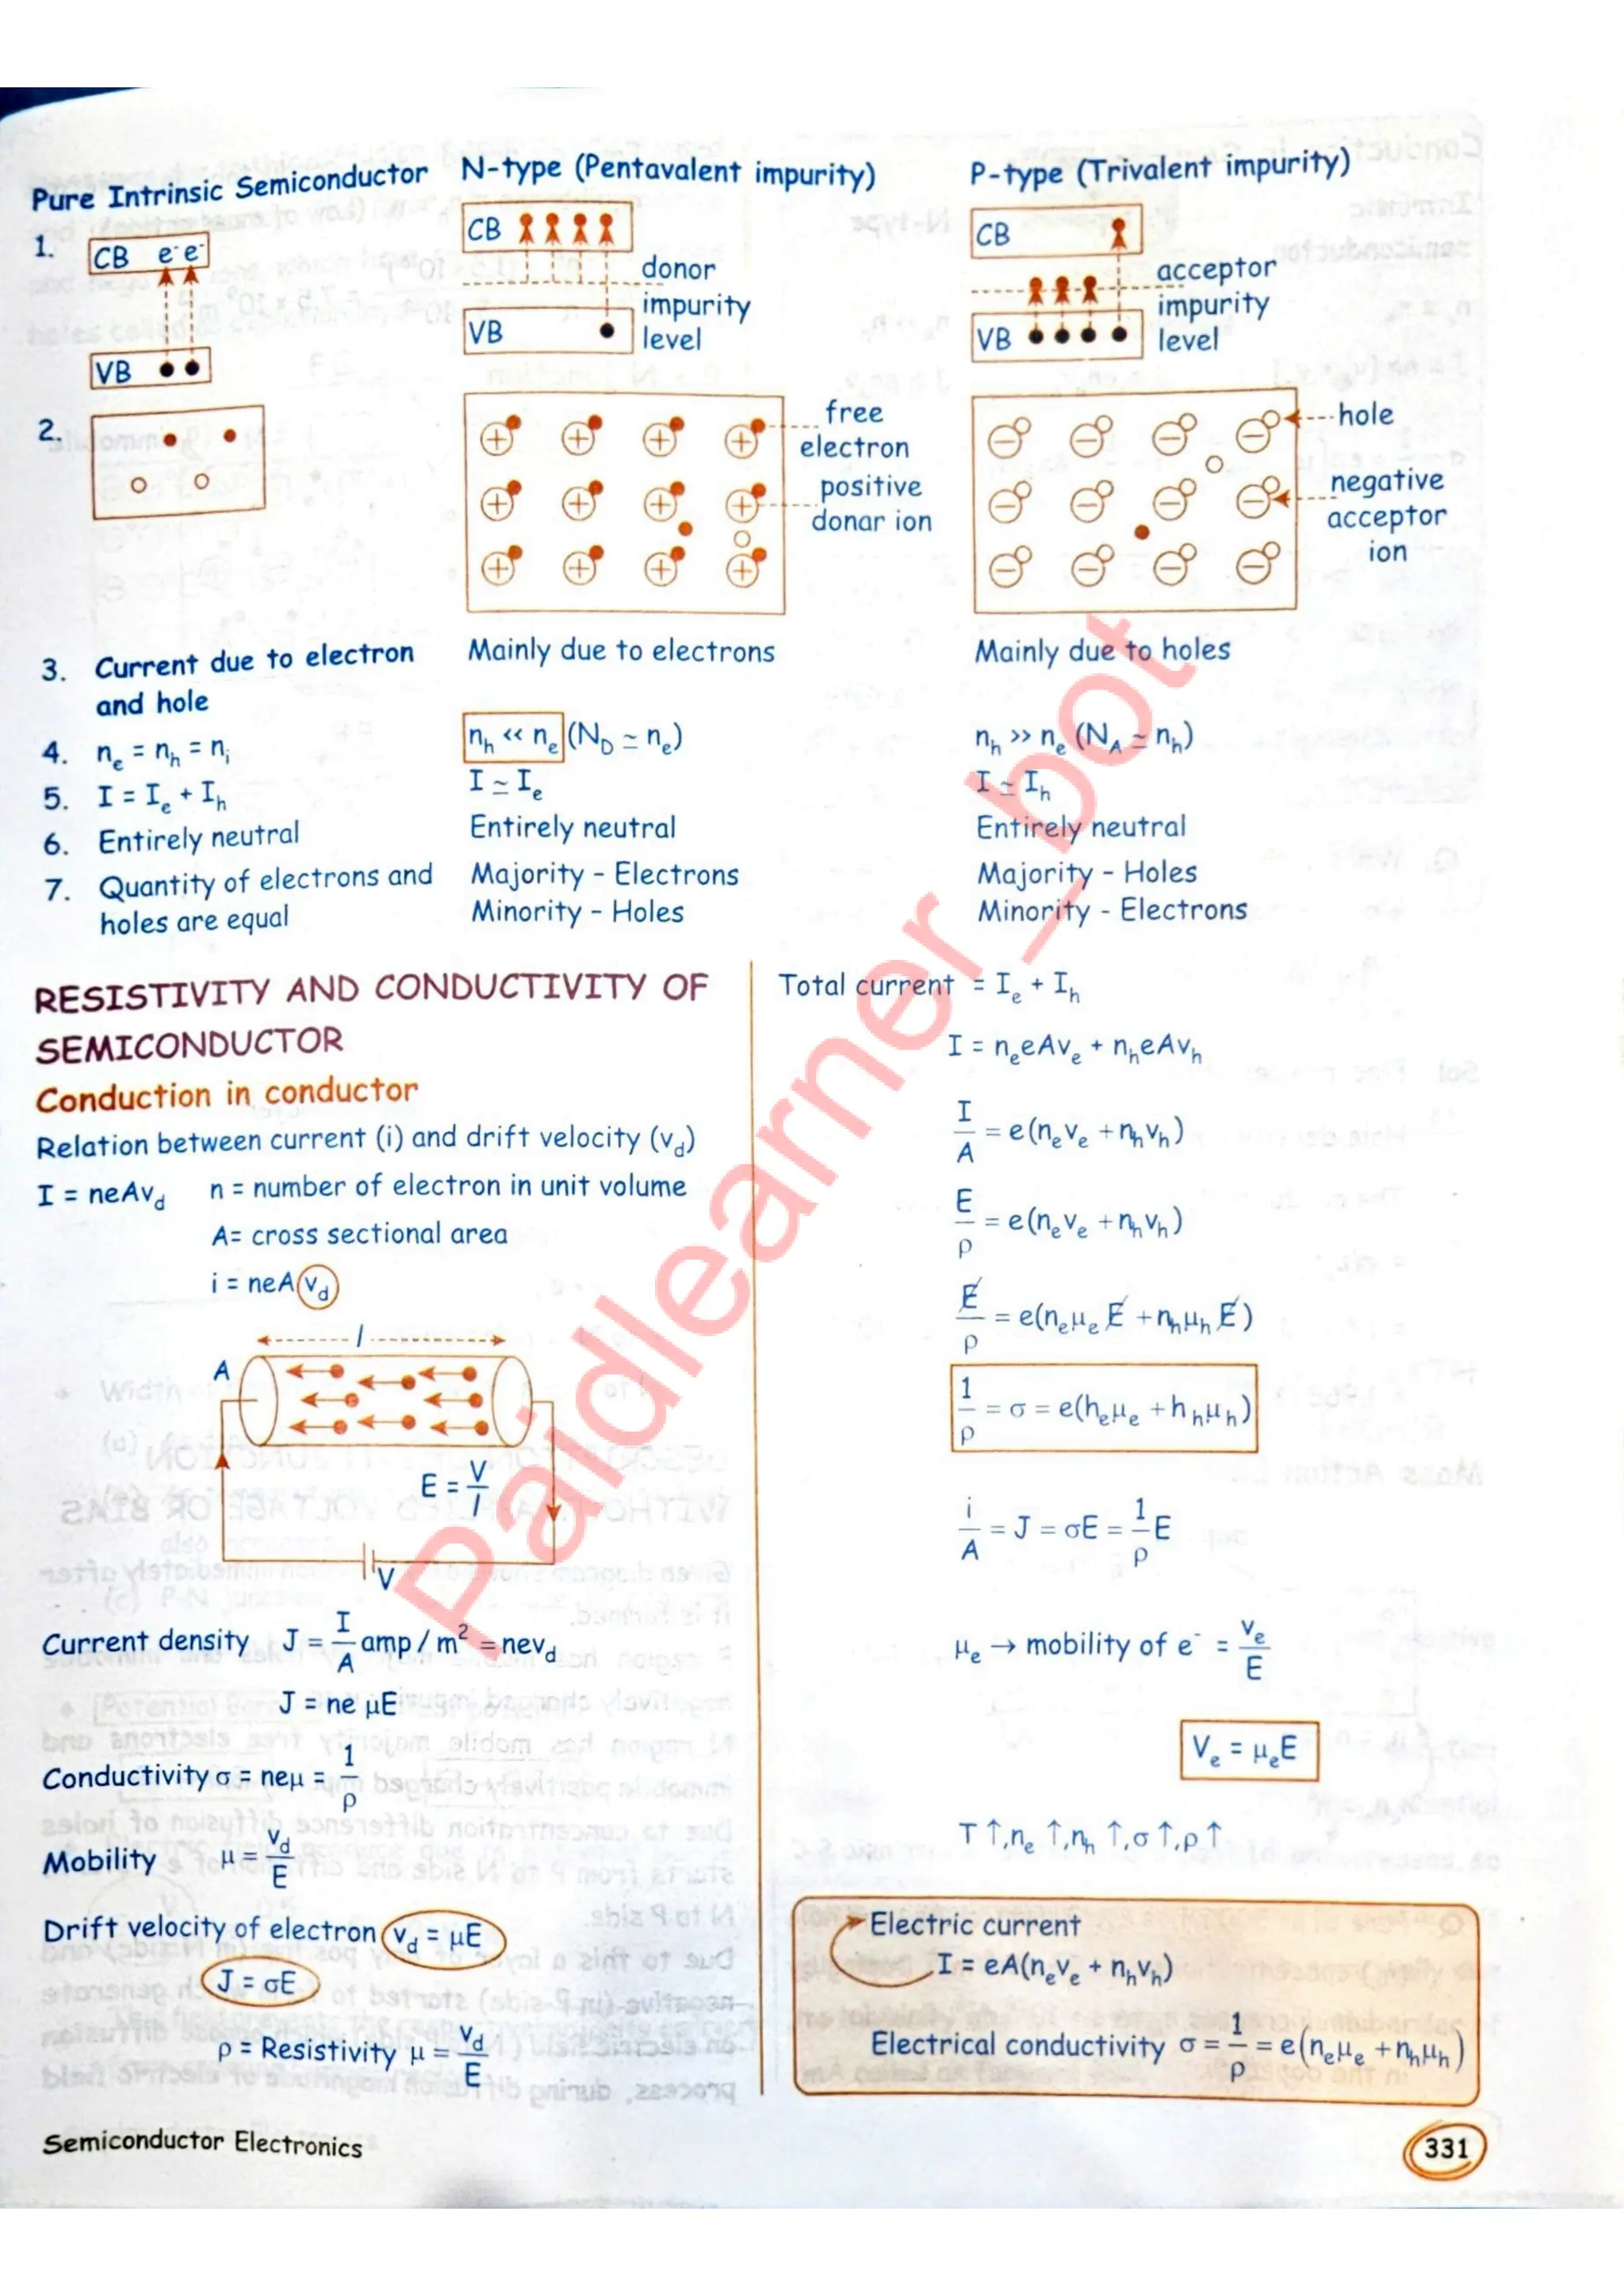 Pure Intrinsic Semiconductor
N-type (Pentavalent impurity)
P-type (Trivalent impurity)
1.
CB e⁻ e⁻
VB
CB
donor
impurity
level
VB
CB
acceptor
impurity
level
VB
2.
free
electron
positive
donar ion
hole
negative
acceptor
ion
3. Current due to electron
and hole
Mainly due to electrons
Mainly due to holes
4. nₑ = nₕ = nᵢ
nₕ << nₑ (N_D ≃ nₑ)
nₕ >> nₑ (N_A ≃ nₕ)
5. I = Iₑ + Iₕ
I ≃ Iₑ
I ≃ Iₕ
6. Entirely neutral
Entirely neutral
Entirely neutral
7. Quantity of electrons and
holes are equal
Majority - Electrons
Minority - Holes
Majority - Holes
Minority - Electrons
RESISTIVITY AND CONDUCTIVITY OF
SEMICONDUCTOR
Conduction in conductor
Relation between current (i) and drift velocity (v_d)
I = neAv_d n = number of electron in unit volume
A= cross sectional area
i = neA v_d
l
A
E = V/l
V
Current density J = I/A amp / m² = nev_d
J = ne μE
Conductivity σ = neμ = 1/ρ
Mobility μ = v_d/E
Drift velocity of electron v_d = μE
J = σE
ρ = Resistivity μ = v_d/E
Total current = Iₑ + Iₕ
I = nₑeAvₑ + nₕeAvₕ
I/A = e(nₑvₑ + nₕvₕ)
E/ρ = e(nₑvₑ + nₕvₕ)
E/ρ = e(nₑμₑE + nₕμₕE)
1/ρ = σ = e(hₑμₑ + hₕμₕ)
i/A = J = σE = 1/ρ E
μₑ → mobility of e⁻ = vₑ/E
Vₑ = μₑE
T ↑, nₑ ↑, nₕ ↑, σ ↑, ρ ↑
Electric current
I = eA(nₑvₑ + nₕvₕ)
Electrical conductivity σ = 1/ρ = e(nₑμₑ + nₕμₕ)
Semiconductor Electronics
331
Paidlearner_bot